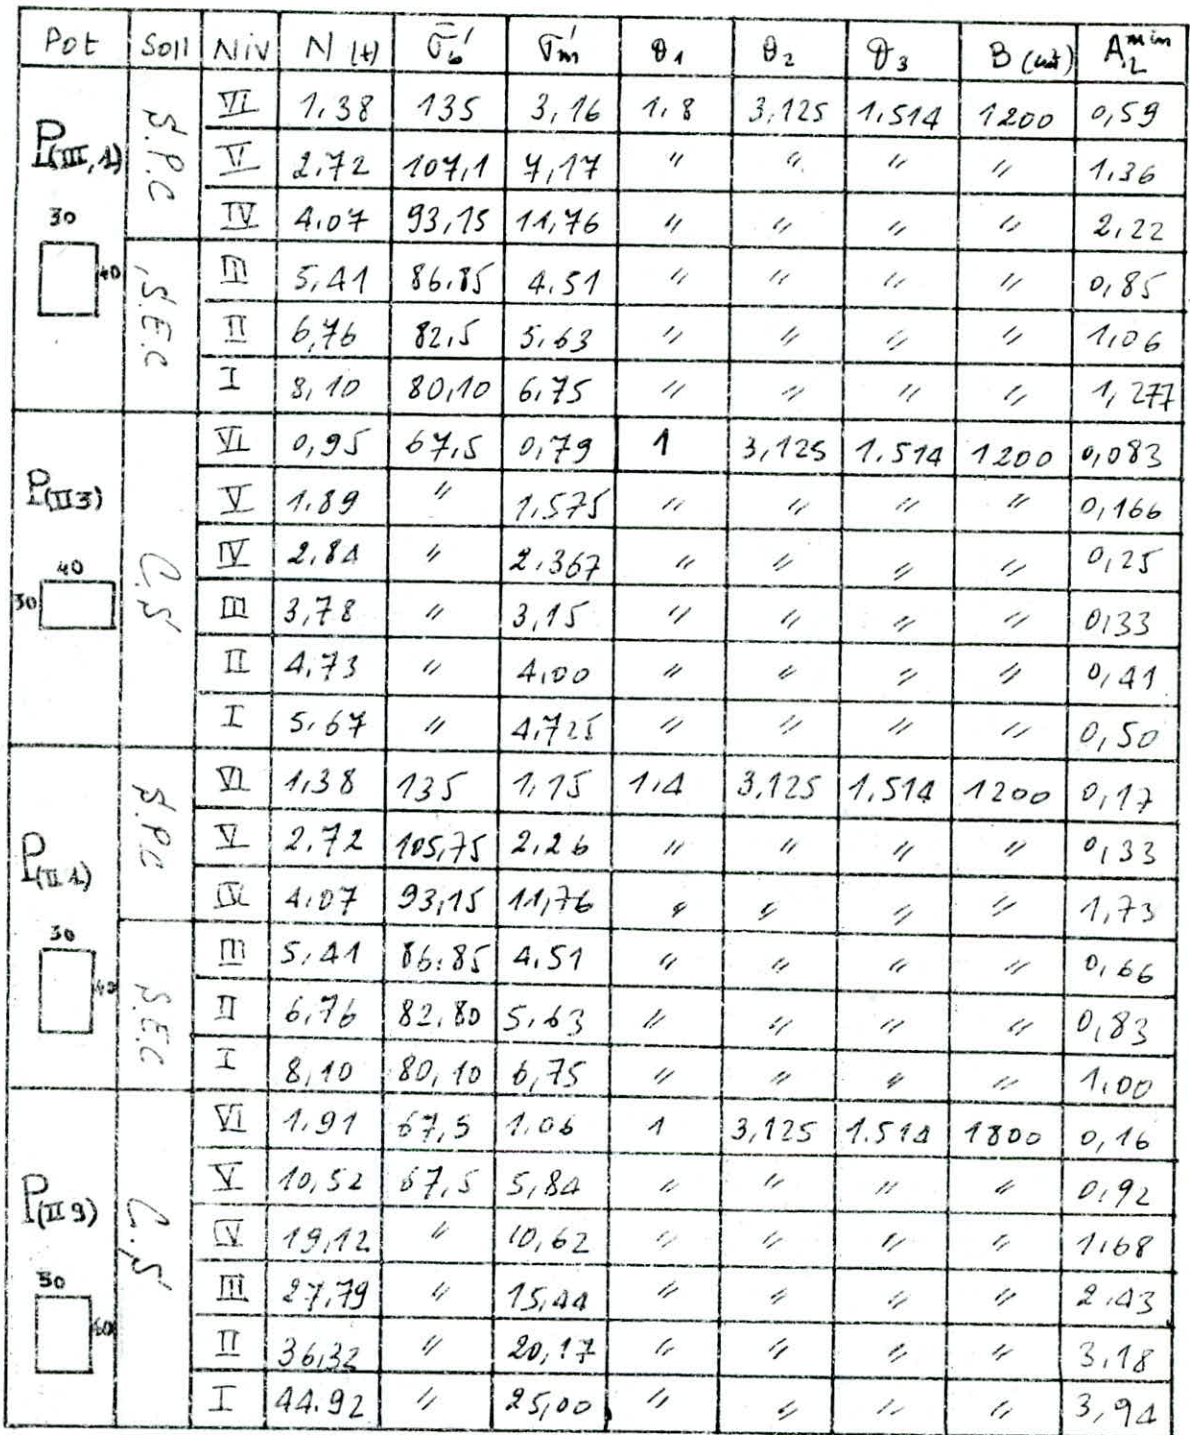 Pot Soll Niv N (t) σ̄'b σ'm θ1 θ2 θ3 B (cm²) A2 min
P(III,1) 30 40
S.P.C
VI 1,38 135 3,16 1,8 3,125 1,514 1200 0,59
V 2,72 107,1 7,17 " " " " 1,36
IV 4,07 93,15 11,76 " " " " 2,22
S.E.C
III 5,41 86,85 4,51 " " " " 0,85
II 6,76 82,5 5,63 " " " " 1,06
I 8,10 80,10 6,75 " " " " 1,277
P(II 3) 40 30
C.S
VI 0,95 67,5 0,79 1 3,125 1.514 1200 0,083
V 1.89 " 1,575 " " " " 0,166
IV 2,84 " 2.367 " " " " 0,25
III 3,78 " 3,15 " " " " 0,33
II 4,73 " 4,00 " " " " 0,41
I 5,67 " 4,725 " " " " 0,50
P(II 1) 30 40
S.P.C
VI 1,38 135 1,15 1,4 3,125 1,514 1200 0,17
V 2,72 105,75 2,26 " " " " 0,33
IV 4,07 93,15 11,76 " " " " 1,73
S.E.C
III 5,41 86,85 4,51 " " " " 0,66
II 6,76 82,80 5,63 " " " " 0,83
I 8,10 80,10 6,75 " " " " 1,00
P(II 9) 30 60
C.S
VI 1,91 67,5 1,06 1 3,125 1.514 1800 0,16
V 10,52 67,5 5,84 " " " " 0,92
IV 19,12 " 10,62 " " " " 1,68
III 27,79 " 15,44 " " " " 2,43
II 36,32 " 20,17 " " " " 3,18
I 44.92 " 25,00 " " " " 3,94